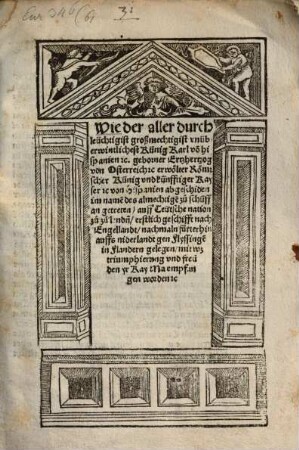 Eur 346 (6
3.
Wie der aller durch
leüchtigist großmechtigist vnüb
erwintlichest Künig Karl võ hi
spanien ꝛc. geborner Ertzhertzog
von Osterreich ꝛc erwölter Römi
scher Künig vnd künfftiger Kay
ser ꝛc von Hispanien abgschiden
im namẽ des almechtigẽ zů schiff
an getretten / auff Teütsche nation
zů zůlendñ / erstlich geschifft nach
Engellandt / nachmaln fürterhin
auffs niderlandt gen Flyssingẽ
in Flandern gelegen / mit wz
triumphierung vnd freü
den yr Kay Ma empfan
gen worden ꝛc